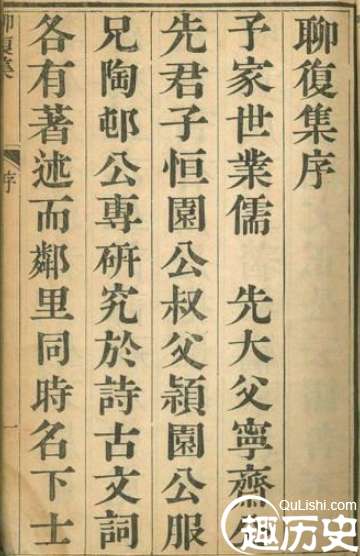 聊復集序
予家世業儒　先大父寧齋公
先君子恒園公叔父穎園公服
兄陶邨公專研究於詩古文詞
各有著述而鄰里同時名下士
聊復集
序
一
QuLishi.com
趣历史